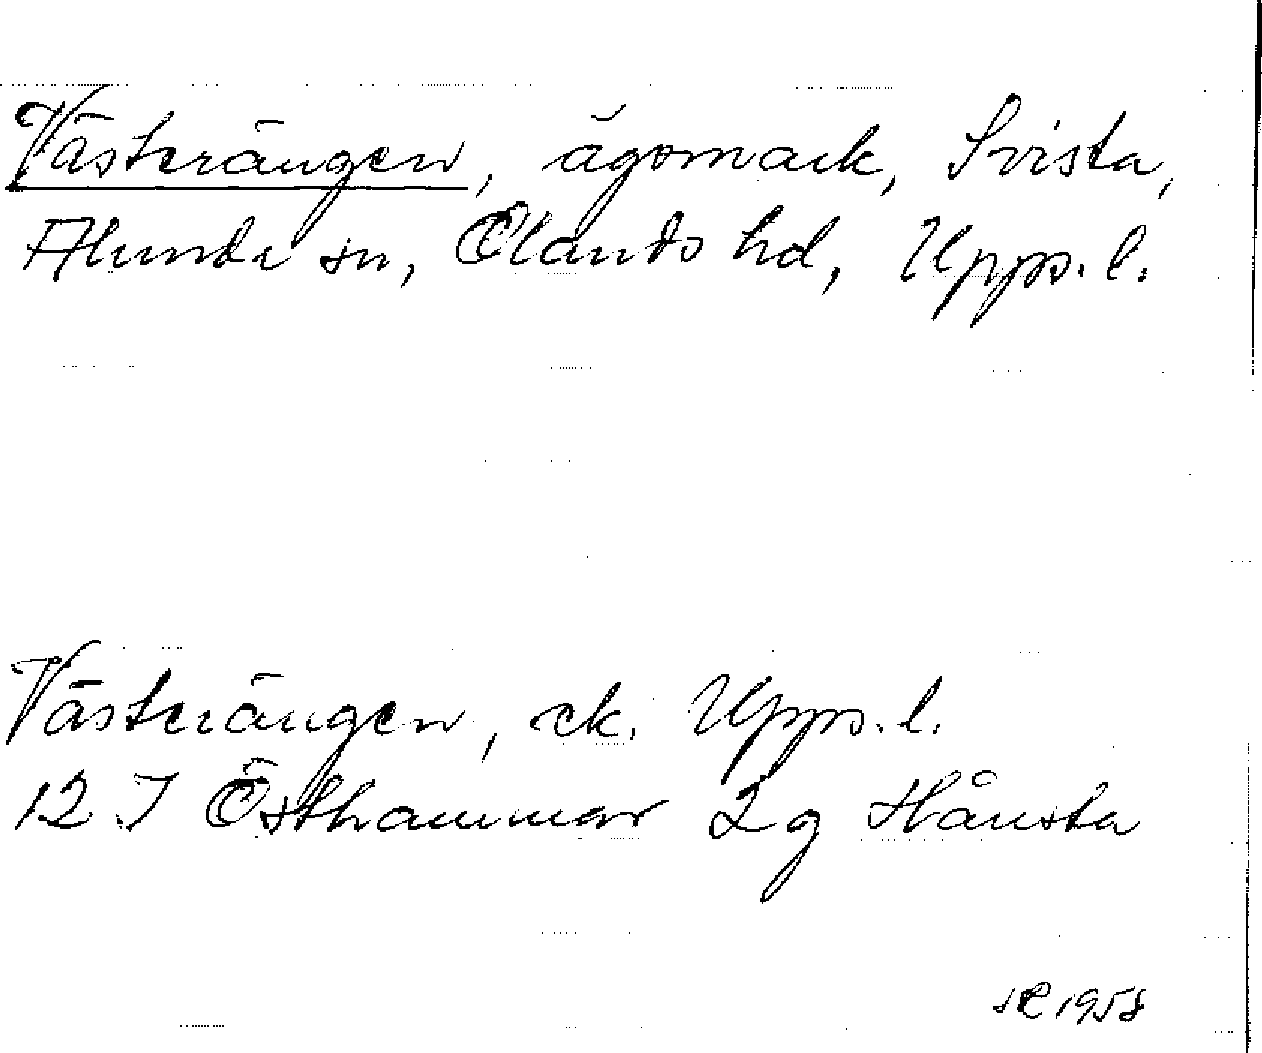 Västerängen, ägomark, Svista,
Alunda sn, Olands hd, Upps. l.
Västerängen, ek. Upps. l.
12 I Östhammar 2 g Hånsta
SR 1958